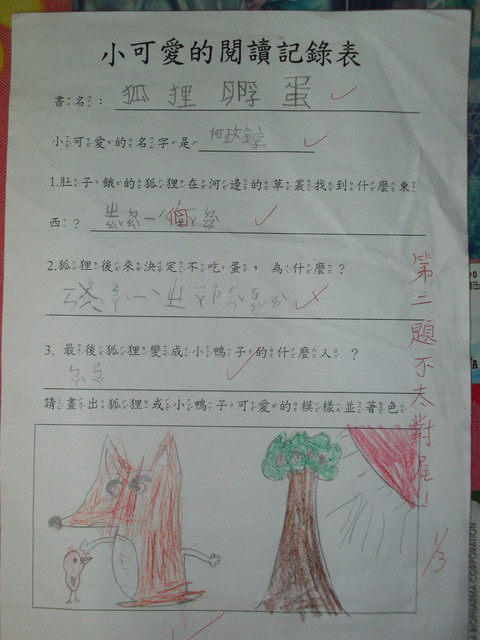 小可愛的閱讀記錄表
書名： 狐狸孵蛋
小可愛的名字是
1.肚子餓的狐狸在河邊的草叢找到什麼東
西？ 一個
2.狐狸後來決定不吃蛋，為什麼？
3. 最後狐狸變成小鴨子的什麼人 ？
請畫出狐狸或小鴨子可愛的模樣並著色
第二題不太對喔！
1/3
BIOPHARMA CORPORATION